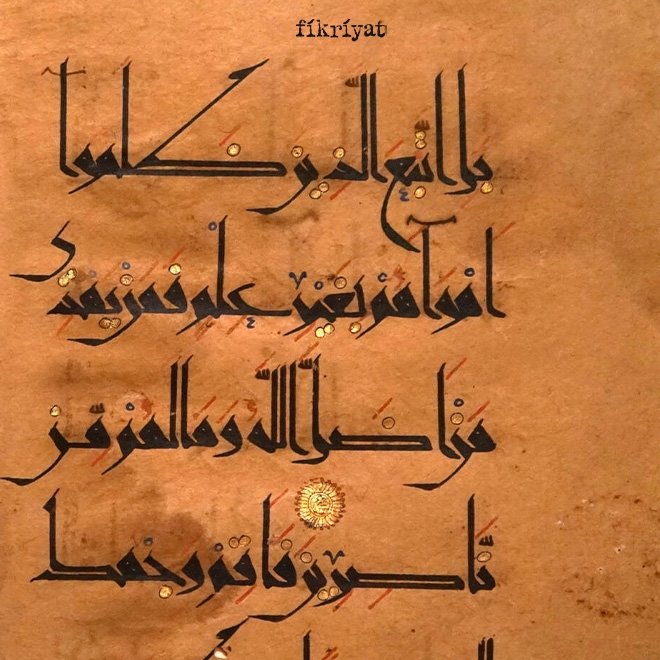 fíkríyat
بل اتبع الذين ظلموا
اهوآهم بغير علم فمن يهدي
من اضل الله وما لهم من
ناصرين فاقم وجهك